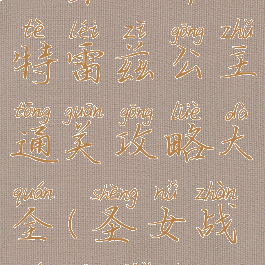 tè léi zī gōng zhǔ
特雷兹公主
tōng guān gōng lüè dà
通关攻略大
quán shèng nǚ zhàn
全(圣女战